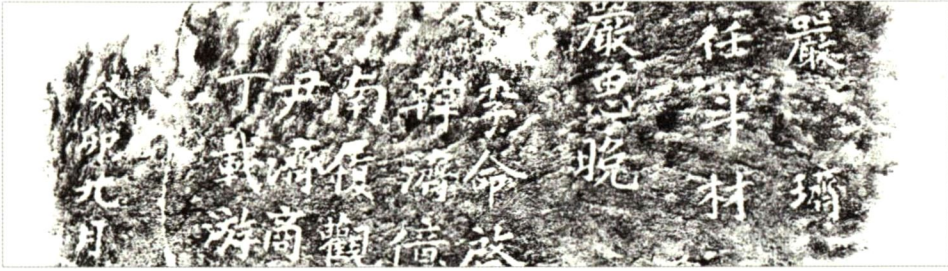 嚴璹
任斗材
嚴思晚
李命啓
韓濟倍
南履觀
尹濟商
丁載游
癸卯九月